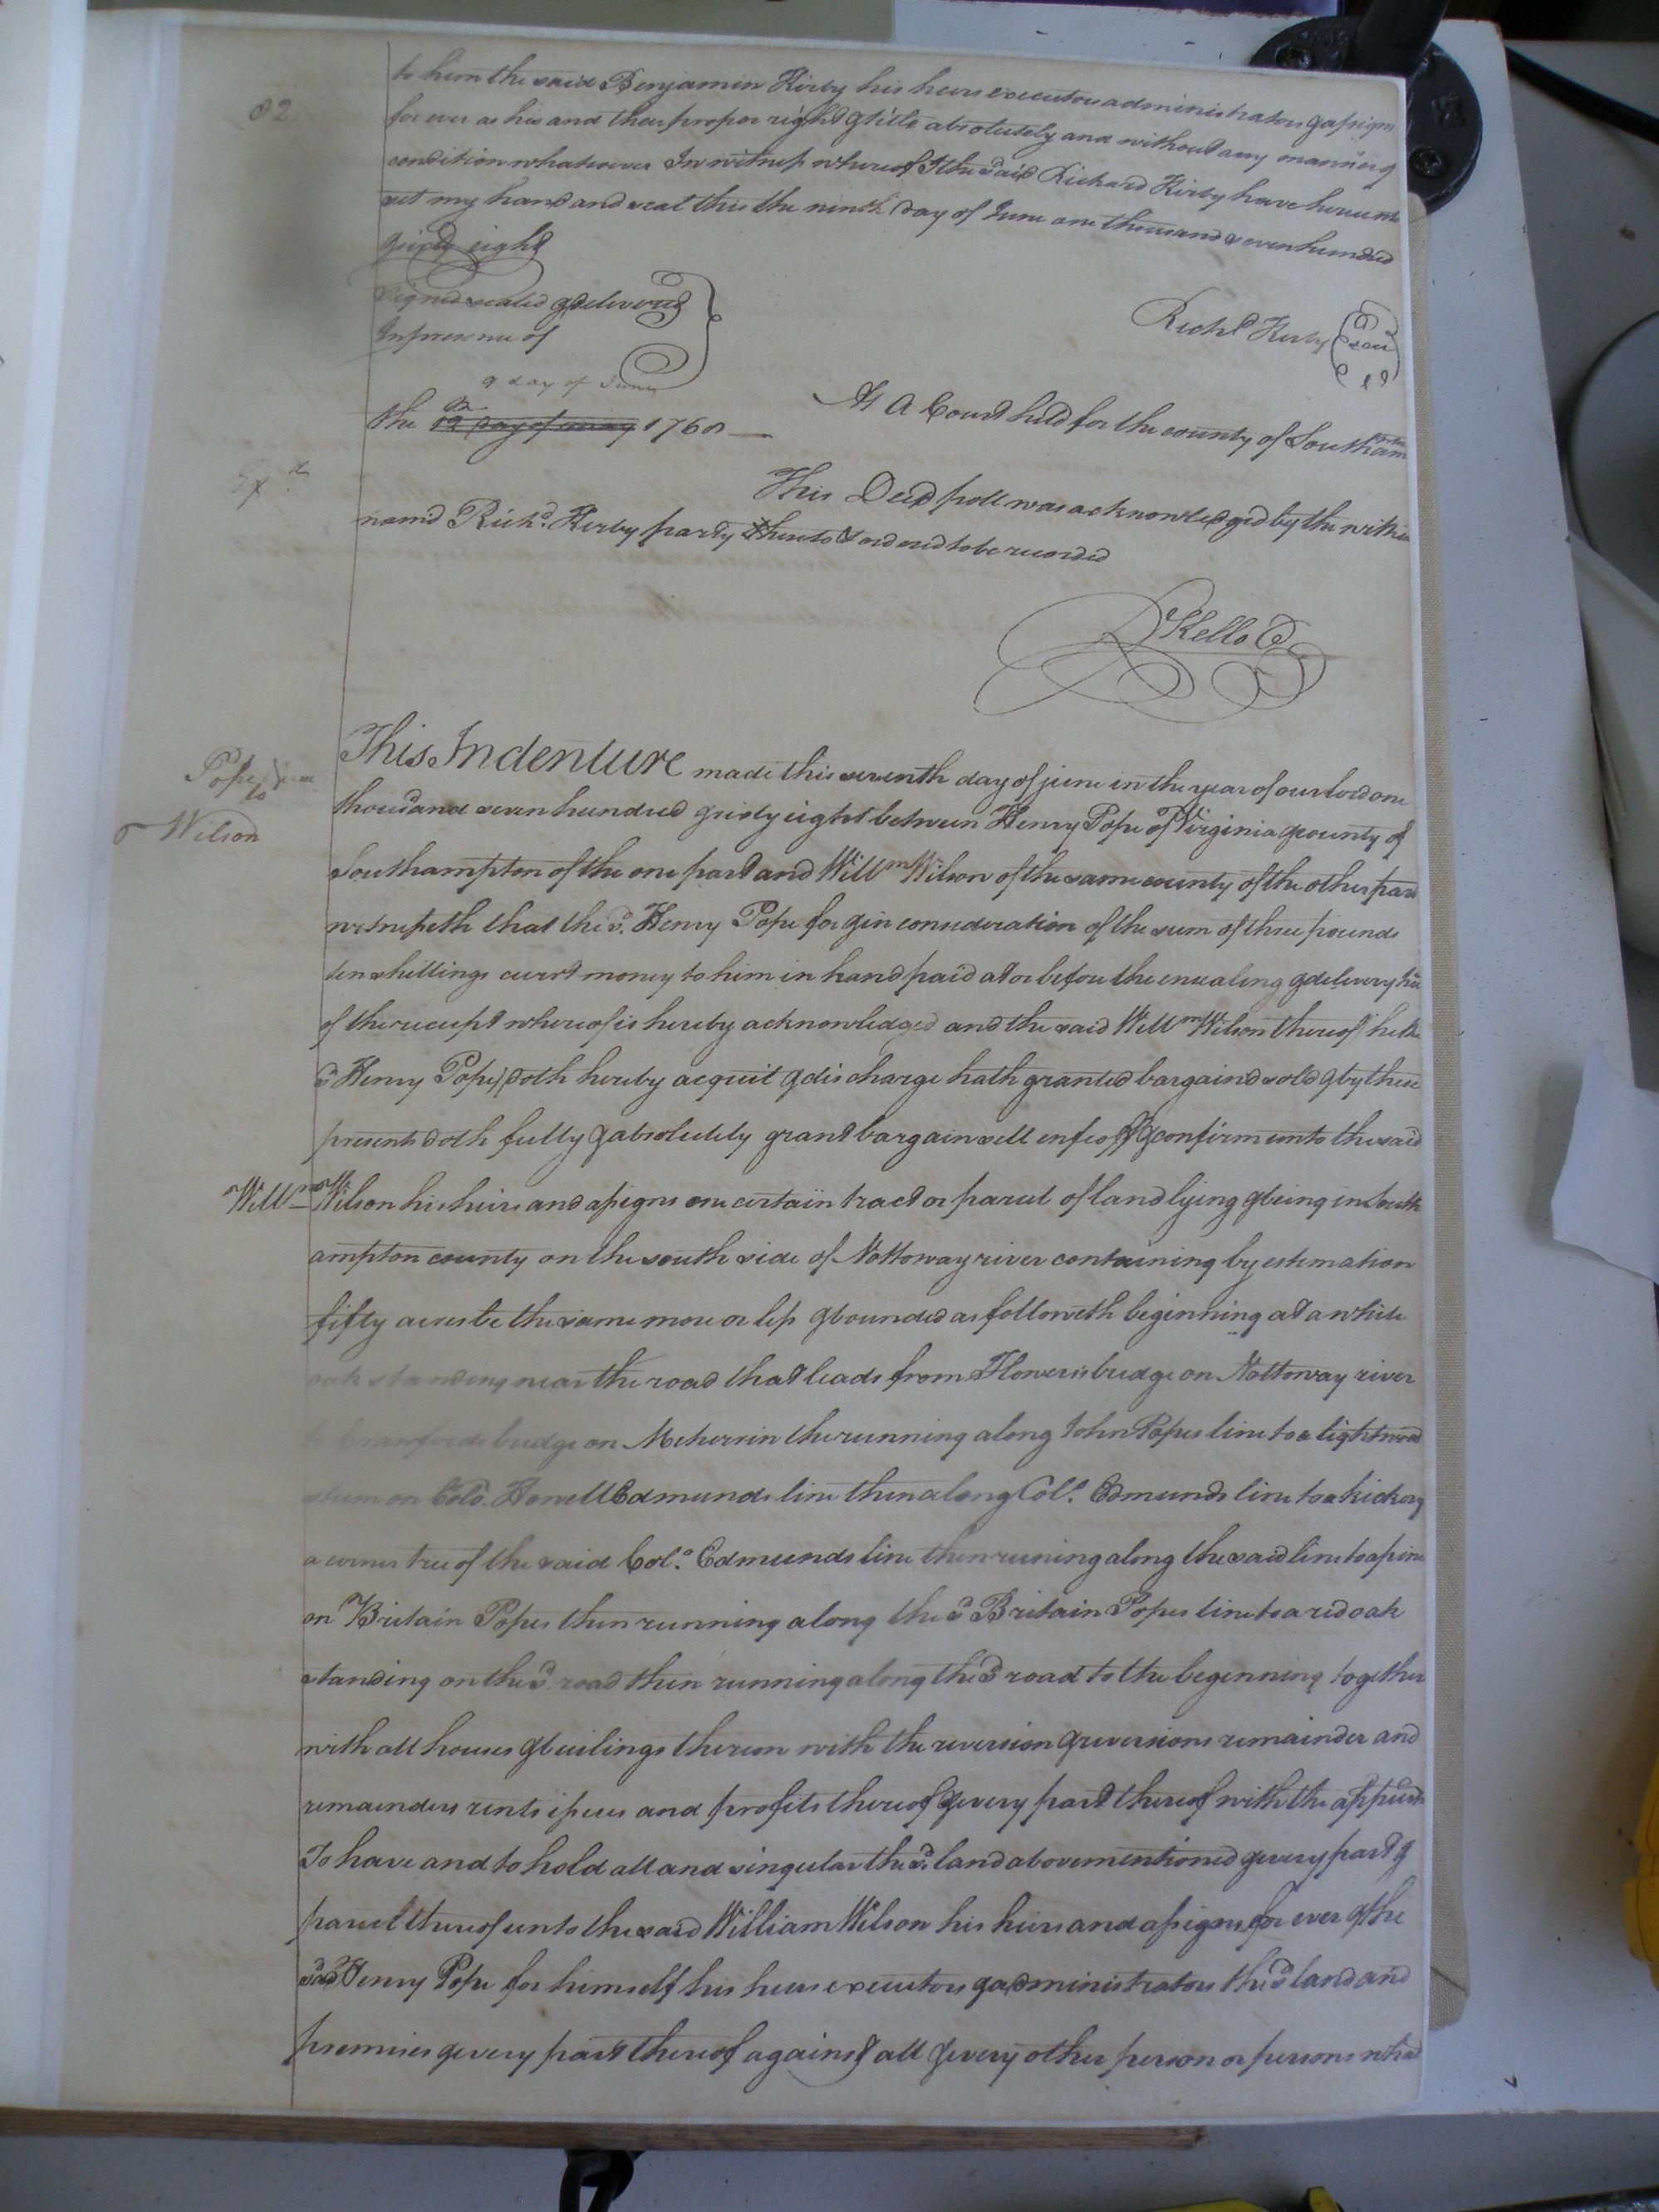 82
to him the said Benjamin Kirby his heirs executors administrators & assigns
for ever as his and their proper right & title absolutely and without any manner of
condition whatsoever In witness whereof I the said Richard Kirby have hereunto
set my hand and seal this the ninth day of June one thousand seven hundred
& sixty eight
Signed sealed & delivered
In presence of
Richd. Kirby (Seal)
At A Court held for the county of Southampton
9 day of June
the 12 day of may 1768
This Deed poll was acknowledged by the within
nam'd Richd. Kerby party thereto & ordered to be recorded
RKello C
Pope
to
Wilson
This Indenture made this seventh day of june in the year of our lord one
thousand seven hundred & sixty eight between Henry Pope of Virginia & county of
Southampton of the one part and Willm Wilson of the same county of the other part
witnesseth that the sd. Henry Pope for & in consideration of the sum of three pounds
ten shillings currt money to him in hand paid at or before the ensealing & delivery
of the receipt whereof is hereby acknowledged and the said Willm Wilson thereof he the
sd Henry Pope) doth hereby acquit & discharge hath granted bargaind sold & by these
presents doth fully & absolutely grant bargain sell enfeoff & confirm unto the said
Willm Wilson his heirs and assigns one certain tract or parcel of land lying & being in South
ampton county on the south side of Nottoway river containing by estimation
fifty acres be the same more or less & bounded as followeth beginning at a white
oak standing near the road that leads from Flowers bridge on Nottoway river
to Crawfords bridge on Meherrin the running along John Popes line to a lightwood
stum on Colo. Howell Edmunds line then along Colo. Edmunds line to a hickory
a corner tree of the said Colo. Edmunds line then runing along the said line to a pine
on Britain Popes then running along the sd Britain Popes line to a red oak
standing on the sd. road then running along the sd road to the beginning together
with all houses & builings thereon with the reversion & reversions remainder and
remainders rents issues and profits thereof & every part thereof with the appurts
To have and to hold all and singular the sd. land abovementioned & every part &
parcel thereof unto the said William Wilson his heirs and assigns for ever & the
said Henry Pope for himself his heirs executors & administrators the sd land and
premises & every part thereof against all & every other person or persons